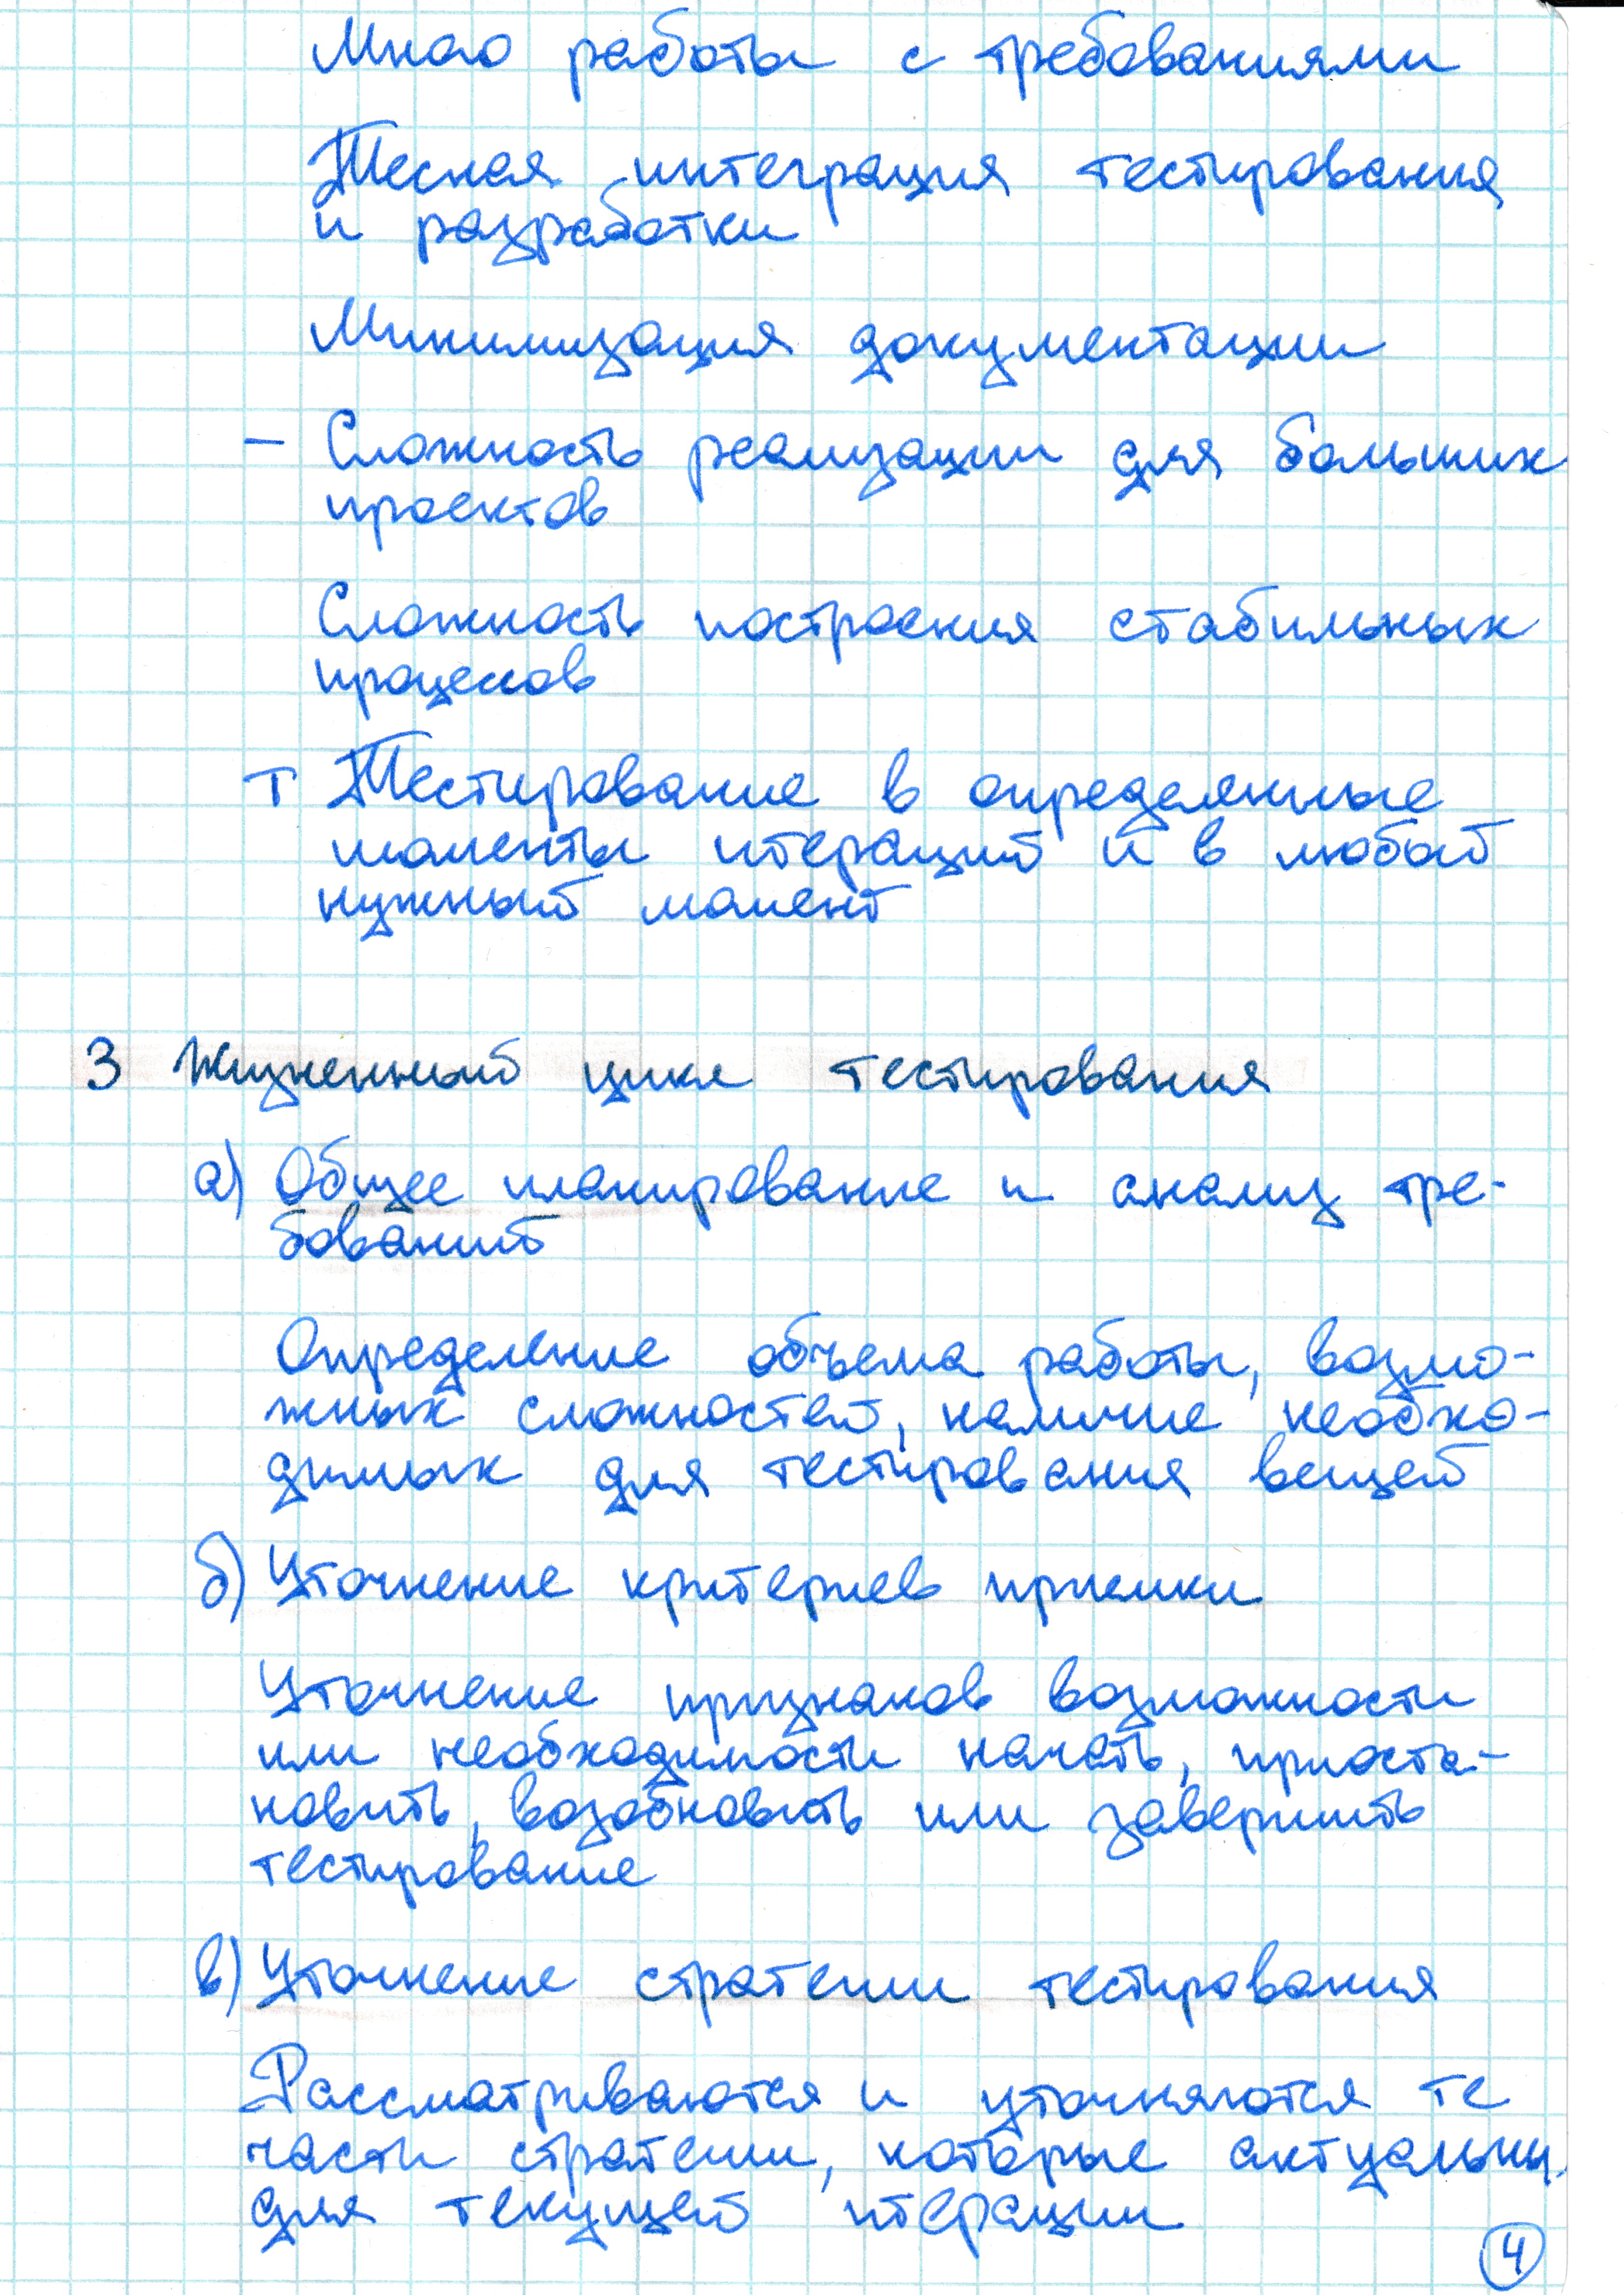 Много работы с требованиями
Тесная интеграция тестирования
и разработки
Минимизация документации
– Сложность реализации для больших
проектов
Сложность построения стабильных
процессов
Т Тестирование в определенные
моменты итераций и в любой
нужный момент
3 Жизненный цикл тестирования
а) Общее планирование и анализ тре-
бований
Определение объема работы, возмо-
жных сложностей, наличие необхо-
димых для тестирования вещей
б) Уточнение критериев приемки
Уточнение признаков возможности
или необходимости начать, приоста-
новить, возобновить или завершить
тестирование
в) Уточнение стратегии тестирования
Рассматриваются и уточняются те
части стратегии, которые актуальны
для текущей итерации
4